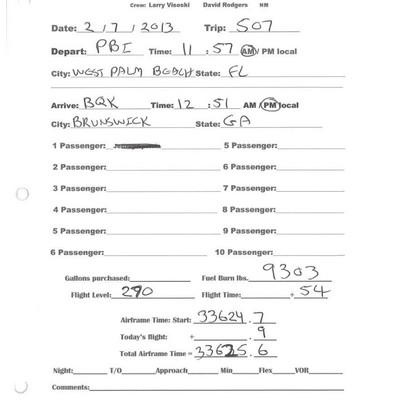 Crew: Larry Visoski David Rodgers NM
Date: 2 / 7 / 2013 Trip: SO7
Depart: PBI Time: 11 : 57 AM / PM local
City: WEST PALM BEACH State: FL
Arrive: BQK Time: 12 : 51 AM / PM local
City: BRUNSWICK State: GA
1 Passenger: 5 Passenger:
2 Passenger: 6 Passenger:
3 Passenger: 7 Passenger:
4 Passenger: 8 Passenger:
5 Passenger: 9 Passenger:
6 Passenger: 10 Passenger:
Gallons purchased: Fuel Burn lbs. 9303
Flight Level: 290 Flight Time: + 54
Airframe Time: Start: 33624.7
Today's flight: + .9
Total Airframe Time = 33625.6
Night: T/O Approach Min Flex VOR
Comments: